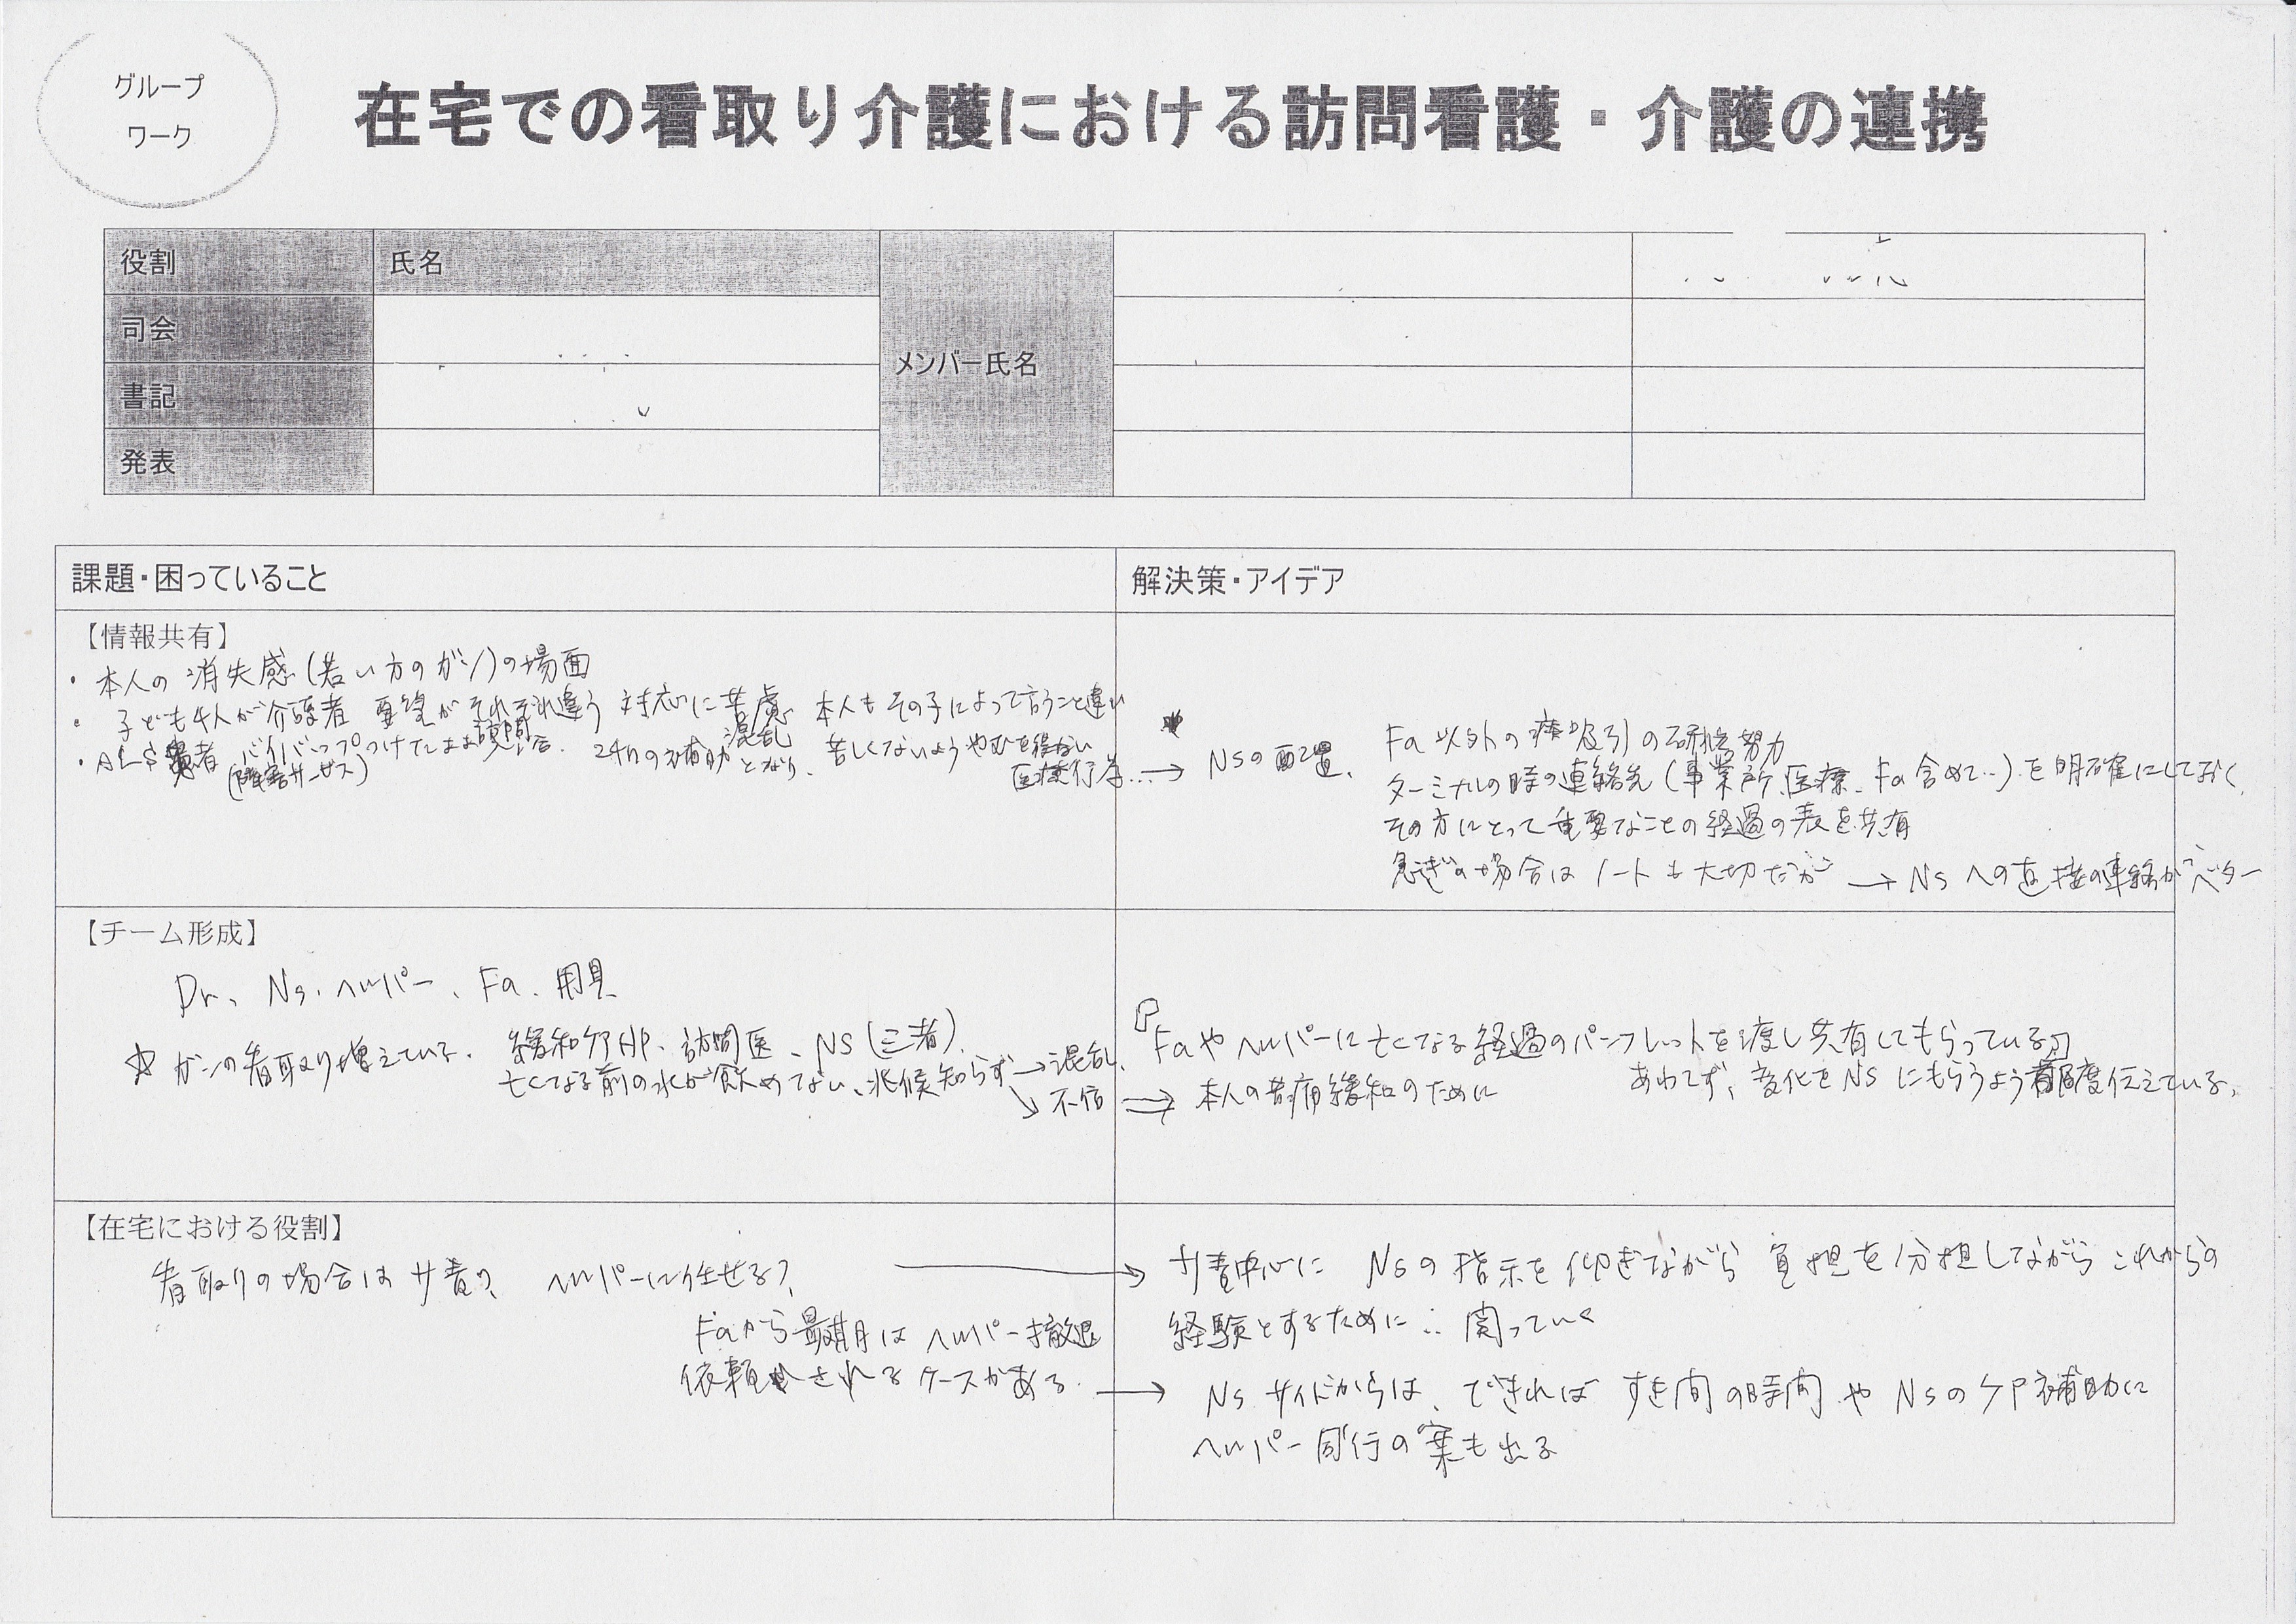 グループ
ワーク
在宅での看取り介護における訪問看護・介護の連携
役割
氏名
メンバー氏名
司会
書記
発表
課題・困っていること
解決策・アイデア
【情報共有】
・本人の消失感(若い方のガン)の場面
・子ども4人が介護者 要望がそれぞれ違う 対応に苦慮 本人もその子によって言うこと違い
・ALS患者 バイパップつけてしまい 訪問 24hの補助 混乱 となり、苦しくないようやむを得ない
(障害サービス)
医療行為…→
NSの配置、
Fa以外の痰吸引の研修努力
ターミナルの時の連絡先(事業所、医療、Fa含めて…)を明確にしておく、
その方にとって重要なことの経過の表を共有
急ぎの場合はノートも大切だが → NSへの直接の連絡がベター
【チーム形成】
Dr、Ns、ヘルパー、Fa、用具
☆ ガンの看取り増えている。 緩和ケアHP、訪問医、NS(三者)
亡くなる前の水が飲めてない、兆候知らず→混乱、
↘不信
『Faやヘルパーに亡くなる経過のパンフレットを渡し共有してもらっている』
⇒ 本人の苦痛緩和のために
あわてず、変化をNSにもらうよう都度伝えている。
【在宅における役割】
看取りの場合はサ責? ヘルパーに任せる?
→ サ責中心に Nsの指示を仰ぎながら 負担を分担しながら これからの
経験とするために∴関っていく
Faから最期はヘルパー撤退
依頼されるケースがある。
→ Nsサイドからは、できればすき間の時間やNsのケア補助に
ヘルパー同行の案も出る